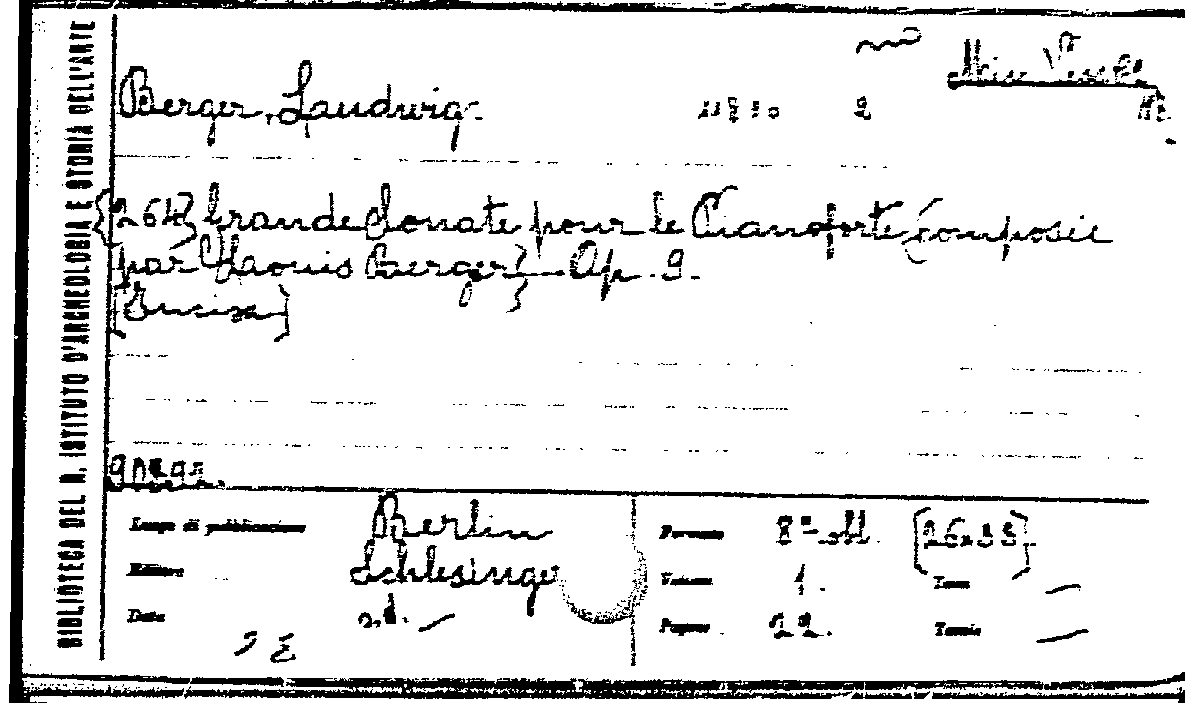 BIBLIOTECA DEL R. ISTITUTO D'ARCHEOLOGIA E STORIA DELL'ARTE
Berger, Laudwig.
2
[264] Grande Sonate pour le Pianoforte composée
par Laouis Berger] — Op. 9.
[Incisa]
Luogo di pubblicazione Berlin
Editore Schlesinge
Data s.d. —
Formato 8º obl. [26x33]
Volume 1. Tomo —
Pagine 22. Tavole —